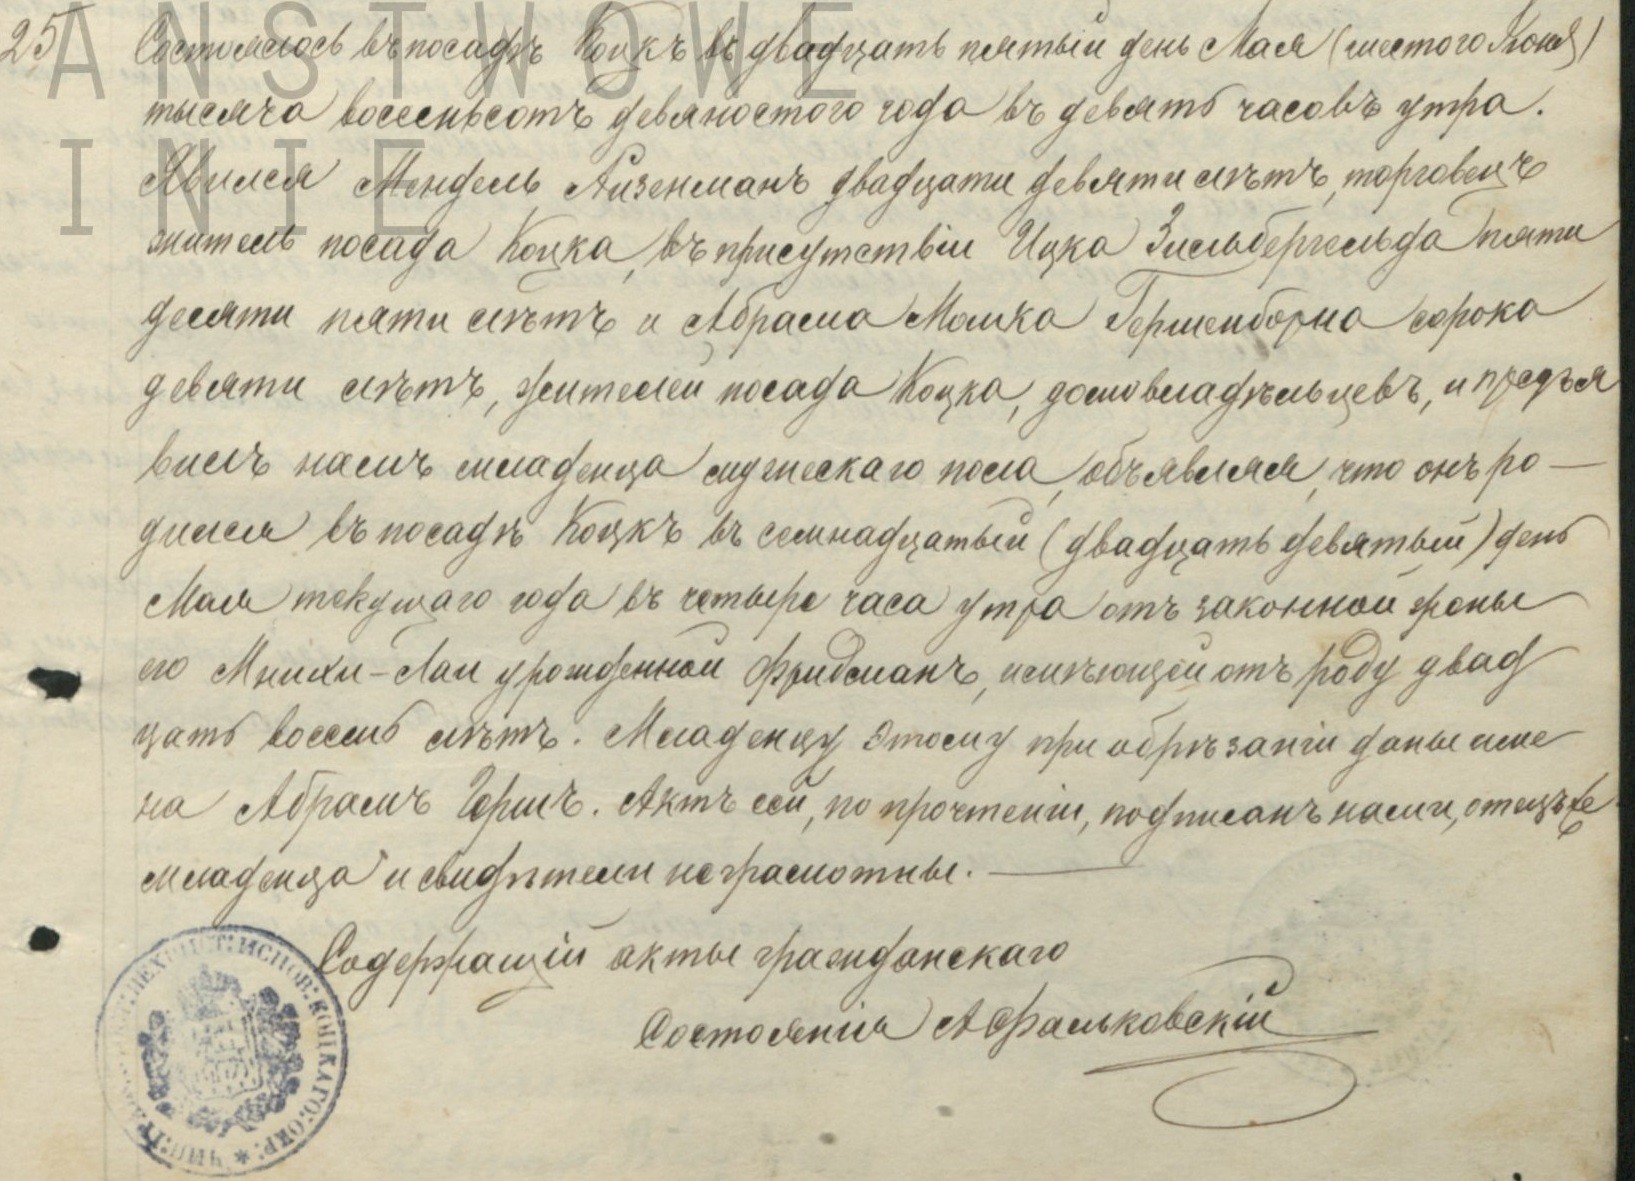 ANSTWOWE
INIE
25
Состоялось въ посадѣ Коцкъ въ двадцать пятый день Мая (шестого Іюня)
тысяча восемьсотъ девяностого года въ девять часовъ утра.
Явился Мендель Айзенманъ двадцати девяти лѣтъ, торговецъ
житель посада Коцка, въ присутствіи Ицка Зильбергельда пяти
десяти пяти лѣтъ и Абрама Мошка Гершенборна сорока
девяти лѣтъ, жителей посада Коцка, домовладѣльцевъ, и предъя
вилъ намъ младенца мужескаго пола, объявляя, что онъ ро—
дился въ посадѣ Коцкъ въ семнадцатый (двадцать девятый) день
Мая текущаго года въ четыре часа утра отъ законной жены
его Мнихи-Лаи урожденной Фридманъ, имѣющей отъ роду двад
цать восемь лѣтъ. Младенцу этому при обрѣзаніи даны име
на Абрамъ Гершъ. Актъ сей, по прочтеніи, подписанъ нами, отецъ же
младенца и свидѣтели неграмотны. —
Содержащій акты гражданскаго
Состоянія АФальковскій
ИСПОВ: КОЦКАГО: ОКР: